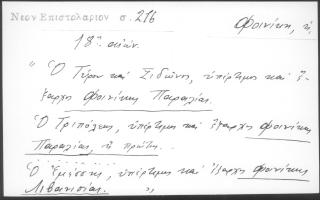 Νεον Επιστολαριον σ. 216
Φοινίκη, ἡ
18ος αἰών.
"Ὁ Τύρου καὶ Σιδῶνος, ὑπέρτιμος καὶ ἔ-
ξαρχος Φοινίκης Παραλίας.
Ὁ Τριπόλεως, ὑπέρτιμος καὶ ἔξαρχος Φοινίκης
Παραλίας, ἡ πρώτη.
Ὁ Ἐμέσης, ὑπέρτιμος καὶ ἔξαρχος Φοινίκης
Λιβανισίας. "